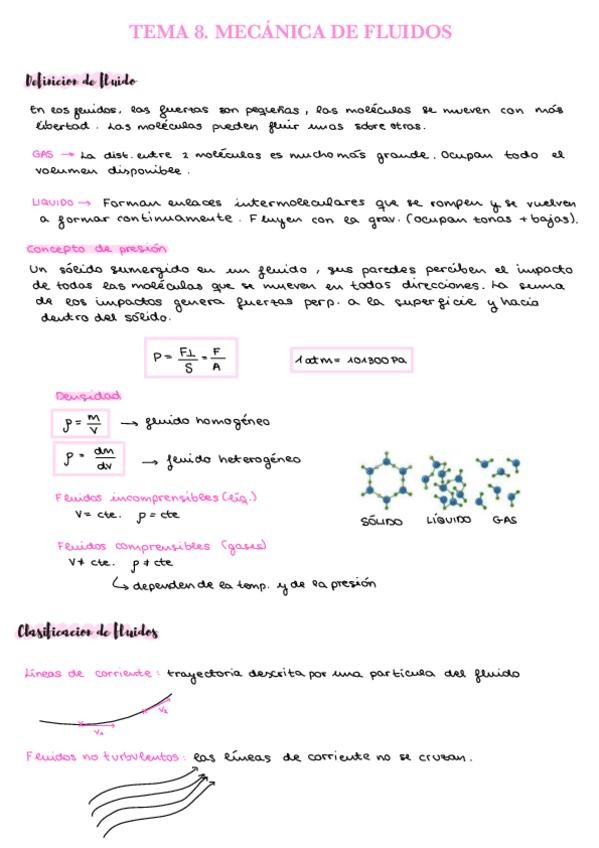 TEMA 8. MECÁNICA DE FLUIDOS
Definicion de fluido
En los fluidos, las fuerzas son pequeñas, las moléculas se mueven con más
libertad. Las moléculas pueden fluir unas sobre otras.
GAS → La dist. entre 2 moléculas es mucho más grande. Ocupan todo el
volumen disponible.
LIQUIDO → Forman enlaces intermoleculares que se rompen y se vuelven
a formar continuamente. Fluyen con la grav. (ocupan zonas + bajas).
Concepto de presión
Un sólido sumergido en un fluido, sus paredes perciben el impacto
de todas las moléculas que se mueven en todas direcciones. La suma
de los impactos genera fuerzas perp. a la superficie y hacia
dentro del sólido.
P = F⊥/S = F/A
1 atm = 101300 Pa
Densidad
ρ = m/V → fluido homogéneo
ρ = dm/dv → fluido heterogéneo
Fluidos incomprensibles (líq.)
V = cte. ρ = cte
SÓLIDO LÍQUIDO GAS
Fluidos comprensibles (gases)
V ≠ cte. ρ ≠ cte
↳ dependen de la temp. y de la presión
Clasificacion de fluidos
Líneas de corriente: trayectoria descrita por una partícula del fluido
V₁ V₂
Fluidos no turbulentos: las líneas de corriente no se cruzan.